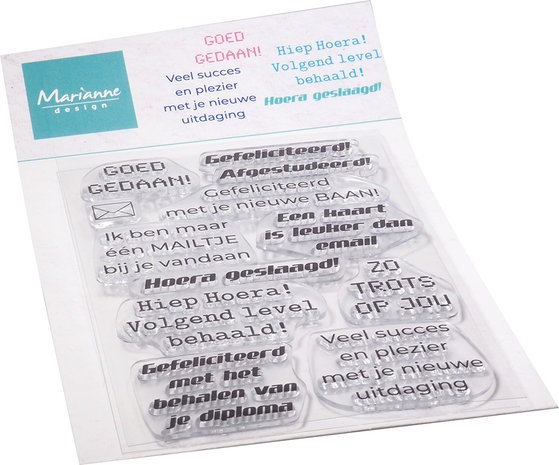 GOED
GEDAAN!
Hiep Hoera!
Volgend level
behaald!
Veel succes
en plezier
met je nieuwe
uitdaging
Hoera geslaagd!
Marianne
design
GOED
GEDAAN!
Gefeliciteerd!
Afgestudeerd!
Gefeliciteerd
met je nieuwe BAAN!
Ik ben maar
één MAILTJE
bij je vandaan
Een kaart
is leuker dan
email
Hoera geslaagd!
ZO
TROTS
OP JOU
Hiep Hoera!
Volgend level
behaald!
Gefeliciteerd
met het
behalen van
je diploma
Veel succes
en plezier
met je nieuwe
uitdaging